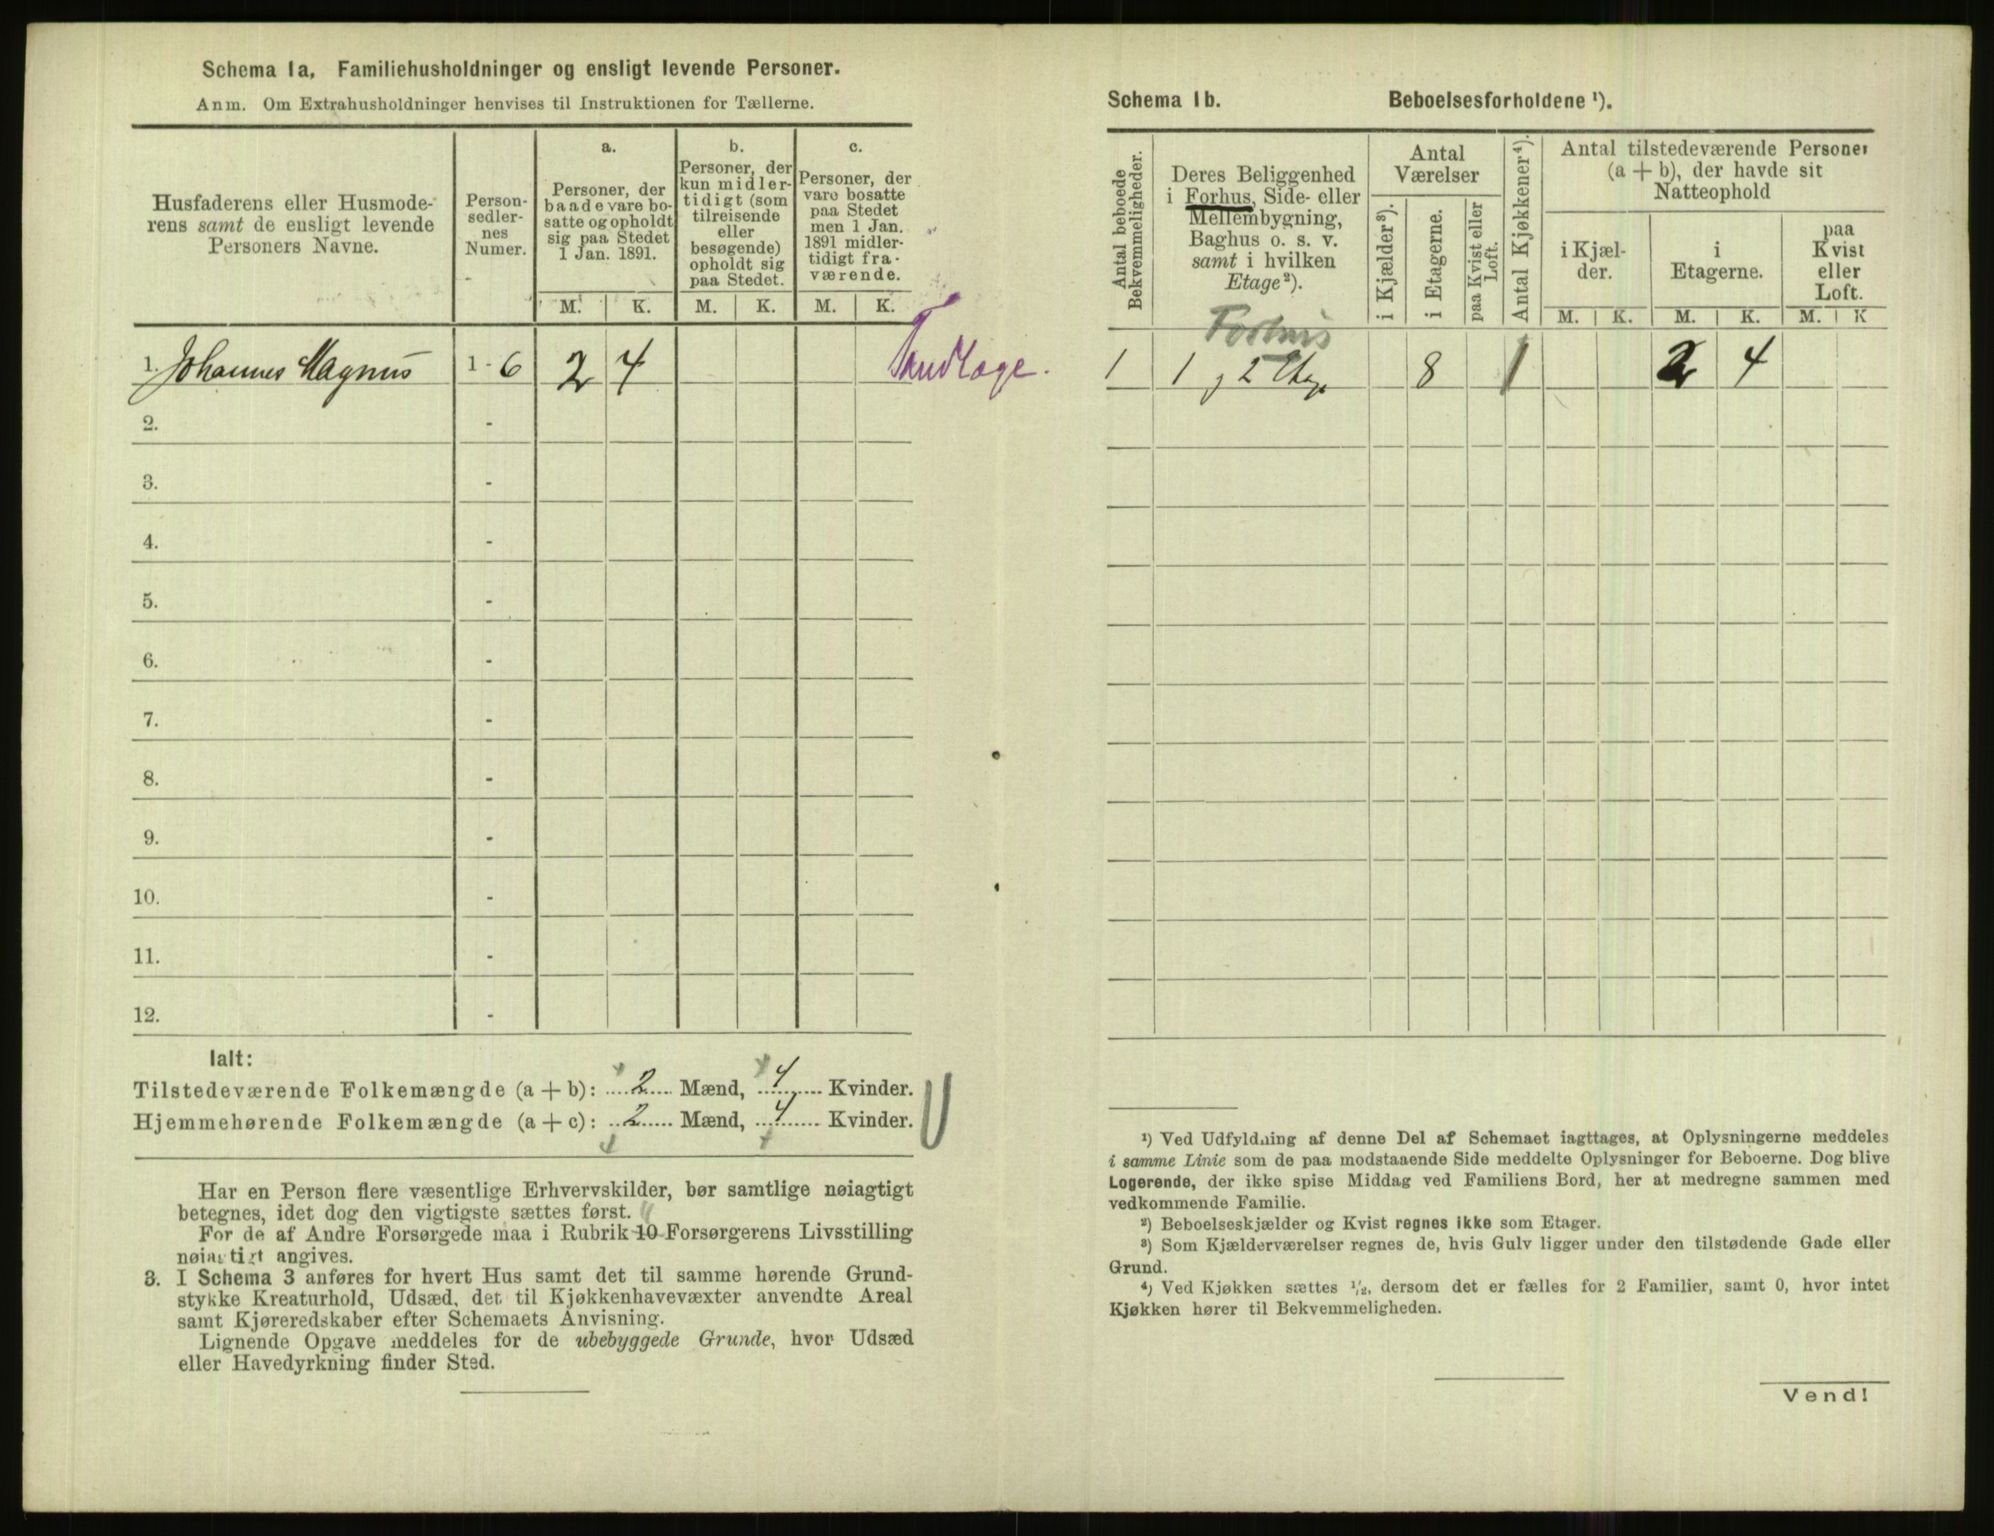 Schema 1a, Familiehusholdninger og ensligt levende Personer.
Anm. Om Extrahusholdninger henvises til Instruktionen for Tællerne.
Husfaderens eller Husmode-
rens samt de ensligt levende
Personers Navne.
Person-
sedler-
nes
Numer.
a.
Personer, der
baade vare bo-
satte og opholdt
sig paa Stedet
1 Jan. 1891.
b.
Personer, der
kun midler-
tidigt (som
tilreisende
eller
besøgende)
opholdt sig
paa Stedet.
c.
Personer, der
vare bosatte
paa Stedet
men 1 Jan.
1891 midler-
tidigt fra-
værende.
M. K. M. K. M. K.
1. Johannes Magnus 1 - 6 2 4 Tandlæge.
2. -
3. -
4. -
5. -
6. -
7. -
8. -
9. -
10. -
11. -
12. -
Ialt:
Tilstedeværende Folkemængde (a + b): 2 Mænd, 4 Kvinder.
Hjemmehørende Folkemængde (a + c): 2 Mænd, 4 Kvinder.
Har en Person flere væsentlige Erhvervskilder, bør samtlige nøiagtigt
betegnes, idet dog den vigtigste sættes først.
For de af Andre Forsørgede maa i Rubrik 10 Forsørgerens Livsstilling
nøiagtigt angives.
3. I Schema 3 anføres for hvert Hus samt det til samme hørende Grund-
stykke Kreaturhold, Udsæd, det til Kjøkkenhavevæxter anvendte Areal
samt Kjøreredskaber efter Schemaets Anvisning.
Lignende Opgave meddeles for de ubebyggede Grunde, hvor Udsæd
eller Havedyrkning finder Sted.
Schema 1b. Beboelsesforholdene ¹).
Antal beboede
Bekvemmeligheder.
Deres Beliggenhed
i Forhus, Side- eller
Mellembygning,
Baghus o. s. v.
samt i hvilken
Etage²).
Antal
Værelser
i Kjælder³).
i Etagerne.
paa Kvist eller
Loft.
Antal Kjøkkener⁴).
Antal tilstedeværende Personer
(a + b), der havde sit
Natteophold
i Kjæl-
der.
i
Etagerne.
paa
Kvist
eller
Loft.
M. K. M. K. M. K
Forhus
1 1 g 2 Etage 8 1 2 4
¹) Ved Udfyldning af denne Del af Schemaet iagttages, at Oplysningerne meddeles
i samme Linie som de paa modstaaende Side meddelte Oplysninger for Beboerne. Dog blive
Logerende, der ikke spise Middag ved Familiens Bord, her at medregne sammen med
vedkommende Familie.
²) Beboelseskjælder og Kvist regnes ikke som Etager.
³) Som Kjælderværelser regnes de, hvis Gulv ligger under den tilstødende Gade eller
Grund.
⁴) Ved Kjøkken sættes ¹/₂, dersom det er fælles for 2 Familier, samt 0, hvor intet
Kjøkken hører til Bekvemmeligheden.
Vend!